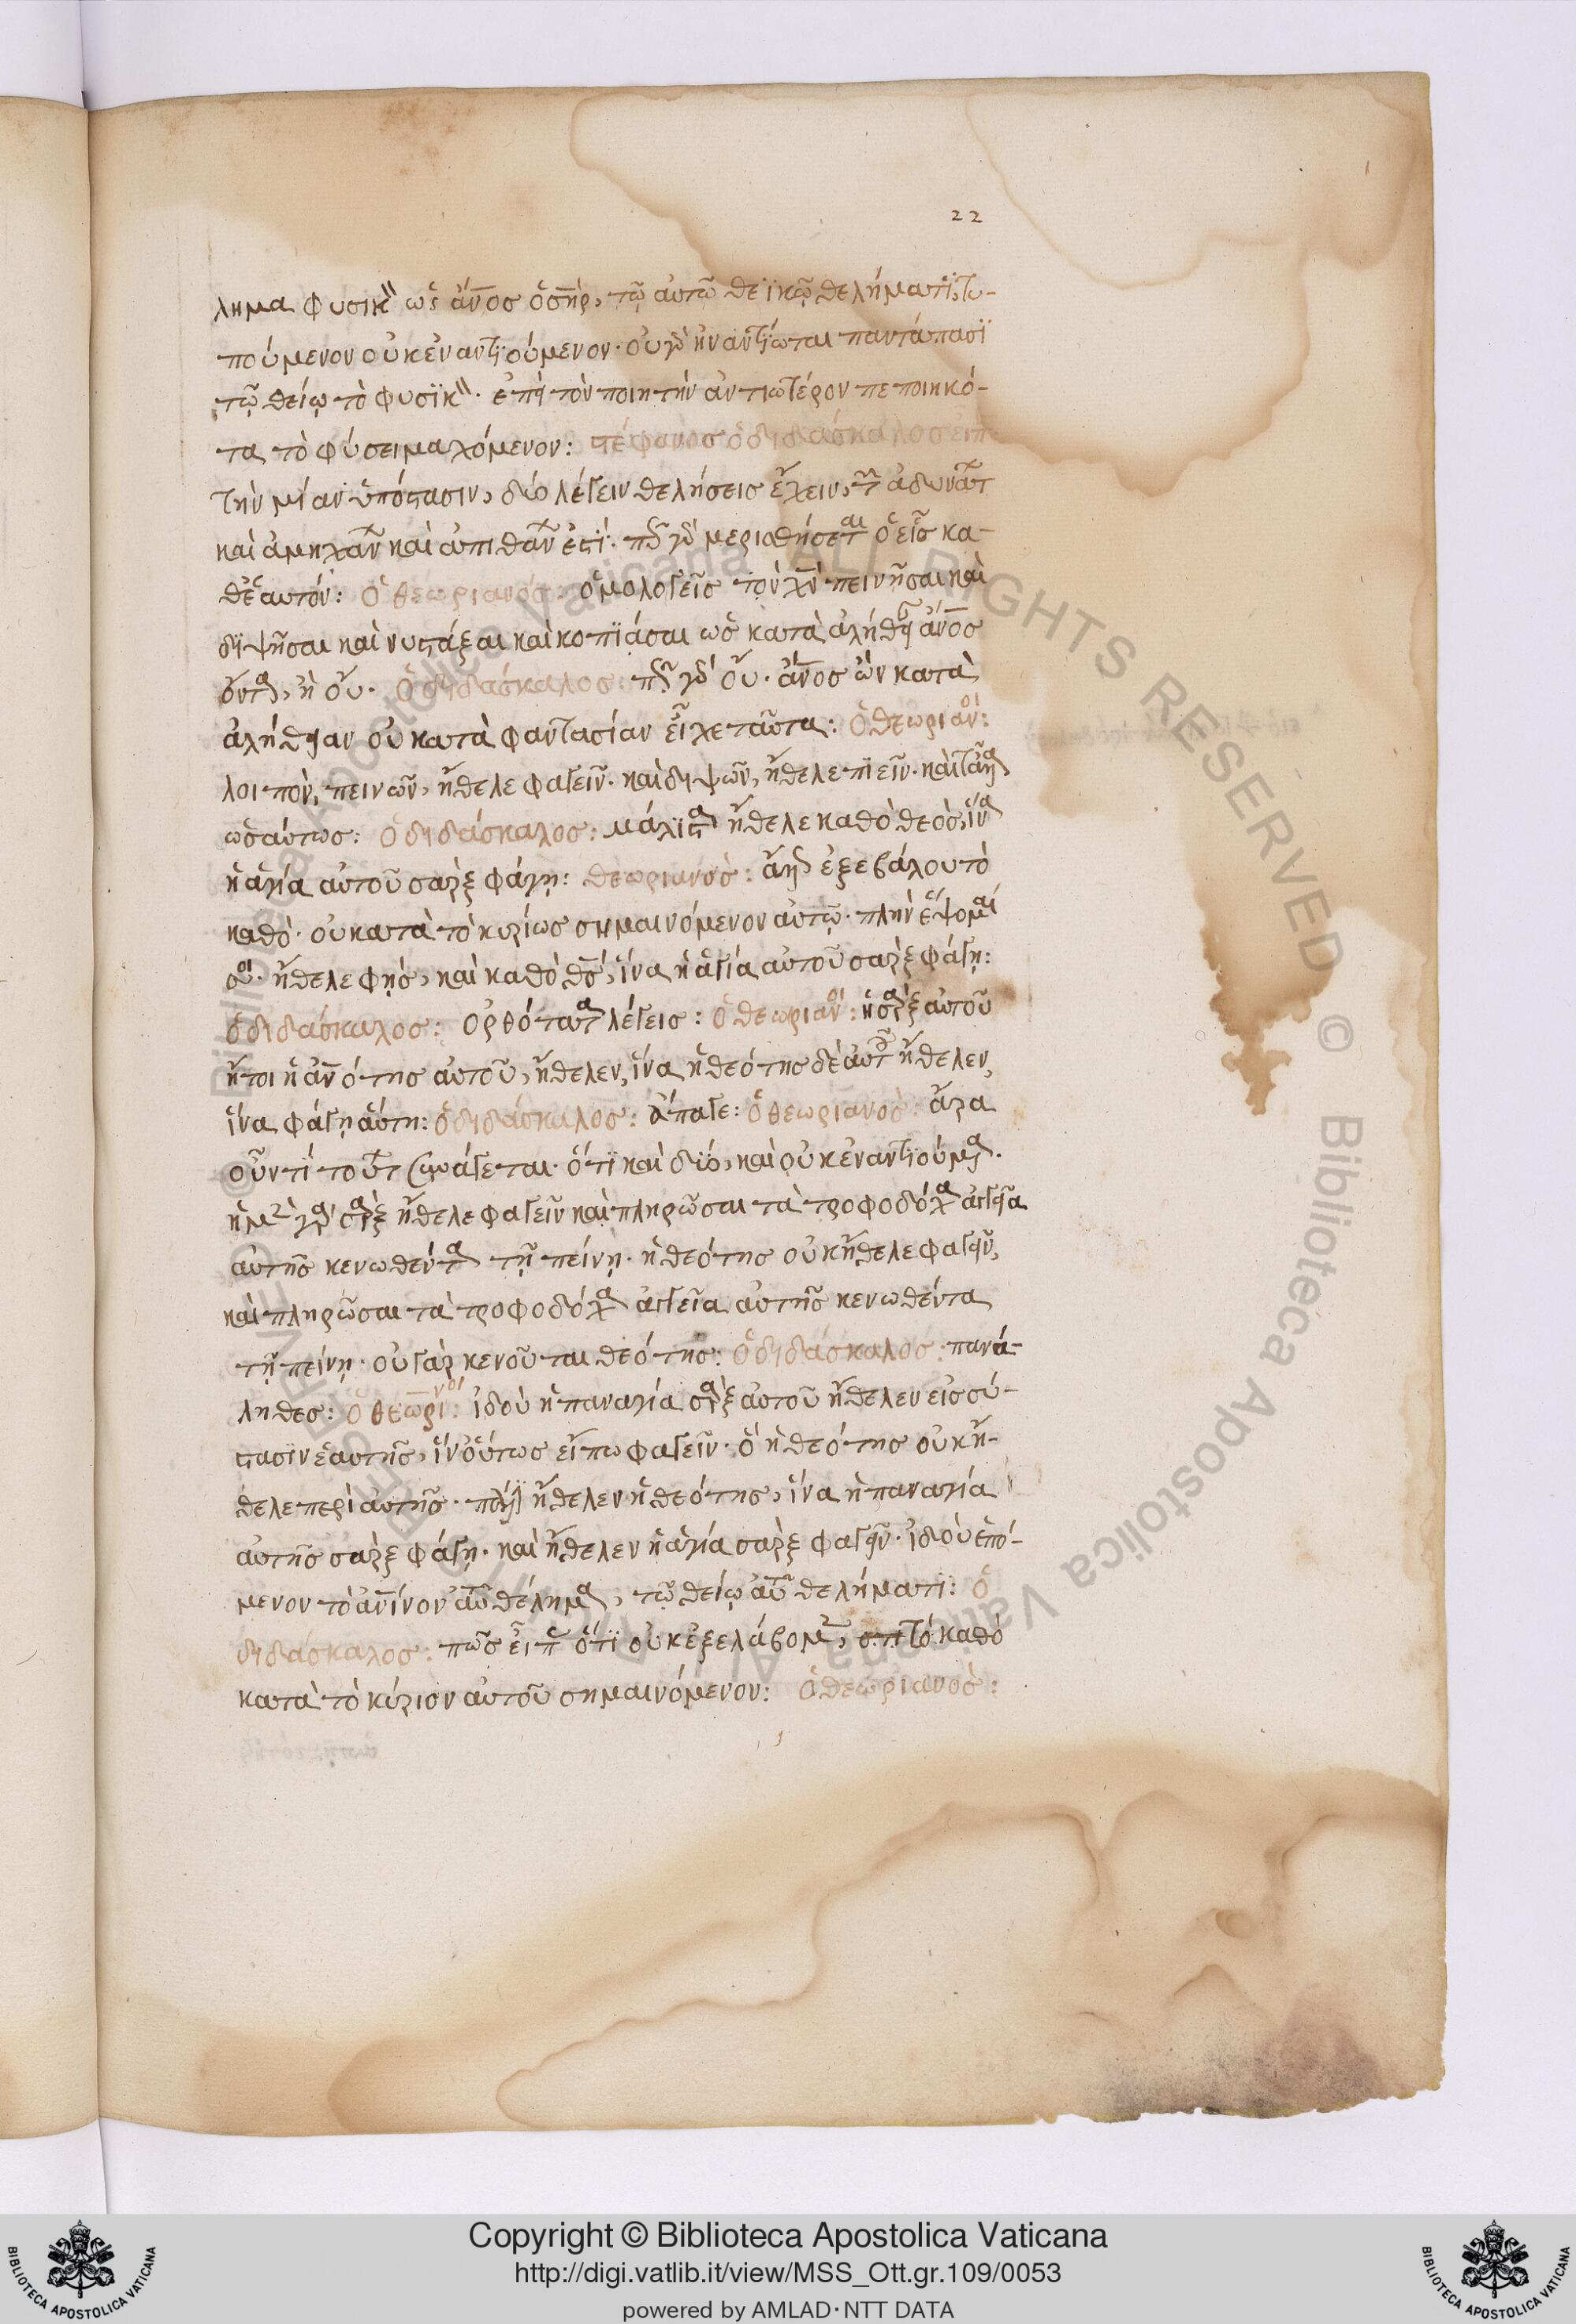 22
λημα φυσικ ὡς ἄνος ὁ σηρ, τῷ αὐτῷ θεϊκῷ θελήματι, τυ-
πούμενον οὐκ ἐναντιούμενον· οὐ γὰρ ἠναντίωται παντάπασι
τῷ θείῳ τὸ φυσικ· ἐπεὶ τὸν ποιητὴν ἀντιωτέρον πεποιηκό-
τα τὸ φύσει μαχόμενον: στέφανος ὁ διδάσκαλος εἶπ
τὴν μίαν ὑπόστασιν, δύο λέγειν θελήσεις ἔχειν, ἀδύνατ
καὶ ἀμήχαν καὶ ἀπίθαν ἐστί· πῶς γὰρ μερισθήσεται ὁ εἷς κα-
θ' ἑαυτόν: ὁ θεωριανός: ὁμολογεῖς τὸν χν πεινῆσαι καὶ
διψῆσαι καὶ νυστάξαι καὶ κοπιάσαι ὡς κατὰ ἀλήθειαν ἄνος
ὄντα, ἢ οὔ· ὁ διδάσκαλος: πῶς γὰρ οὔ· ἄνος ὢν κατὰ
ἀλήθειαν οὐ κατὰ φαντασίαν εἶχε ταῦτα: ὁ θεωριανοί:
λοιπὸν, πεινῶν, ἤθελε φαγεῖν· καὶ διψῶν, ἤθελε πιεῖν· καὶ τἄλλα
ὡσαύτως: ὁ διδάσκαλος: μάλιστα ἤθελε καθὸ θεὸς, ἵνα
ἡ ἁγία αὐτοῦ σαρξ φάγῃ: θεωριανὸς: ἐξεβάλου τὸ
καθὸ· οὐ κατὰ τὸ κυρίως σημαινόμενον αὐτῷ· πλὴν ἕψομαί
σοι· ἤθελε φῂς, καὶ καθὸ θς, ἵνα ἡ ἁγία αὐτοῦ σαρξ φάγῃ:
ὁ διδάσκαλος: ὀρθότατα λέγεις: ὁ θεωριανοί: ἡ σαρξ αὐτοῦ
ἤτοι ἡ ἀνότης αὐτοῦ, ἤθελεν, ἵνα ἡ θεότης δὲ αὐτοῦ ἤθελεν,
ἵνα φάγῃ αὕτη: ὁ διδάσκαλος: ἄπαγε: ὁ θεωριανὸς: ἆρα
οὖν τί τούτ συνάγεται· ὅτι καὶ δύο, καὶ οὐκ ἐναντιούμα·
ἡ μὲν γὰρ σαρξ ἤθελε φαγεῖν καὶ πληρῶσαι τὰ τροφοδόχα ἀγγεῖα
αὐτῆς κενωθέντα τῇ πείνῃ· ἡ θεότης οὐκ ἤθελε φαγεῖν,
καὶ πληρῶσαι τὰ τροφοδόχα ἀγγεῖα αὐτῆς κενωθέντα
τῇ πείνῃ· οὐ γὰρ κενοῦται θεότης: ὁ διδάσκαλος: πανά-
ληθες: ὁ θεωρινοί: ἰδοὺ ἡ παναγία σαρξ αὐτοῦ ἤθελεν εἰς σύ-
στασιν ἑαυτῆς, ἵν' οὕτως εἴπω φαγεῖν· ὃ ἡ θεότης οὐκ ἤ-
θελε περὶ αὐτῆς· πλὴν ἤθελεν ἡ θεότης, ἵνα ἡ παναγία
αὐτῆς σαρξ φάγῃ· καὶ ἤθελεν ἡ ἁγία σαρξ φαγεῖν· ἰδοὺ ἑπό-
μενον τὸ ἀνίνον αὐτοῦ θέλημα, τῷ θείῳ αὐτοῦ θελήματι: ὁ
διδάσκαλος: πῶς εἶπς ὅτι οὐκ ἐξελάβομεν, τὸ καθὸ
κατὰ τὸ κύριον αὐτοῦ σημαινόμενον: ὁ θεωριανὸς:
Copyright © Biblioteca Apostolica Vaticana
http://digi.vatlib.it/view/MSS_Ott.gr.109/0053
powered by AMLAD·NTT DATA